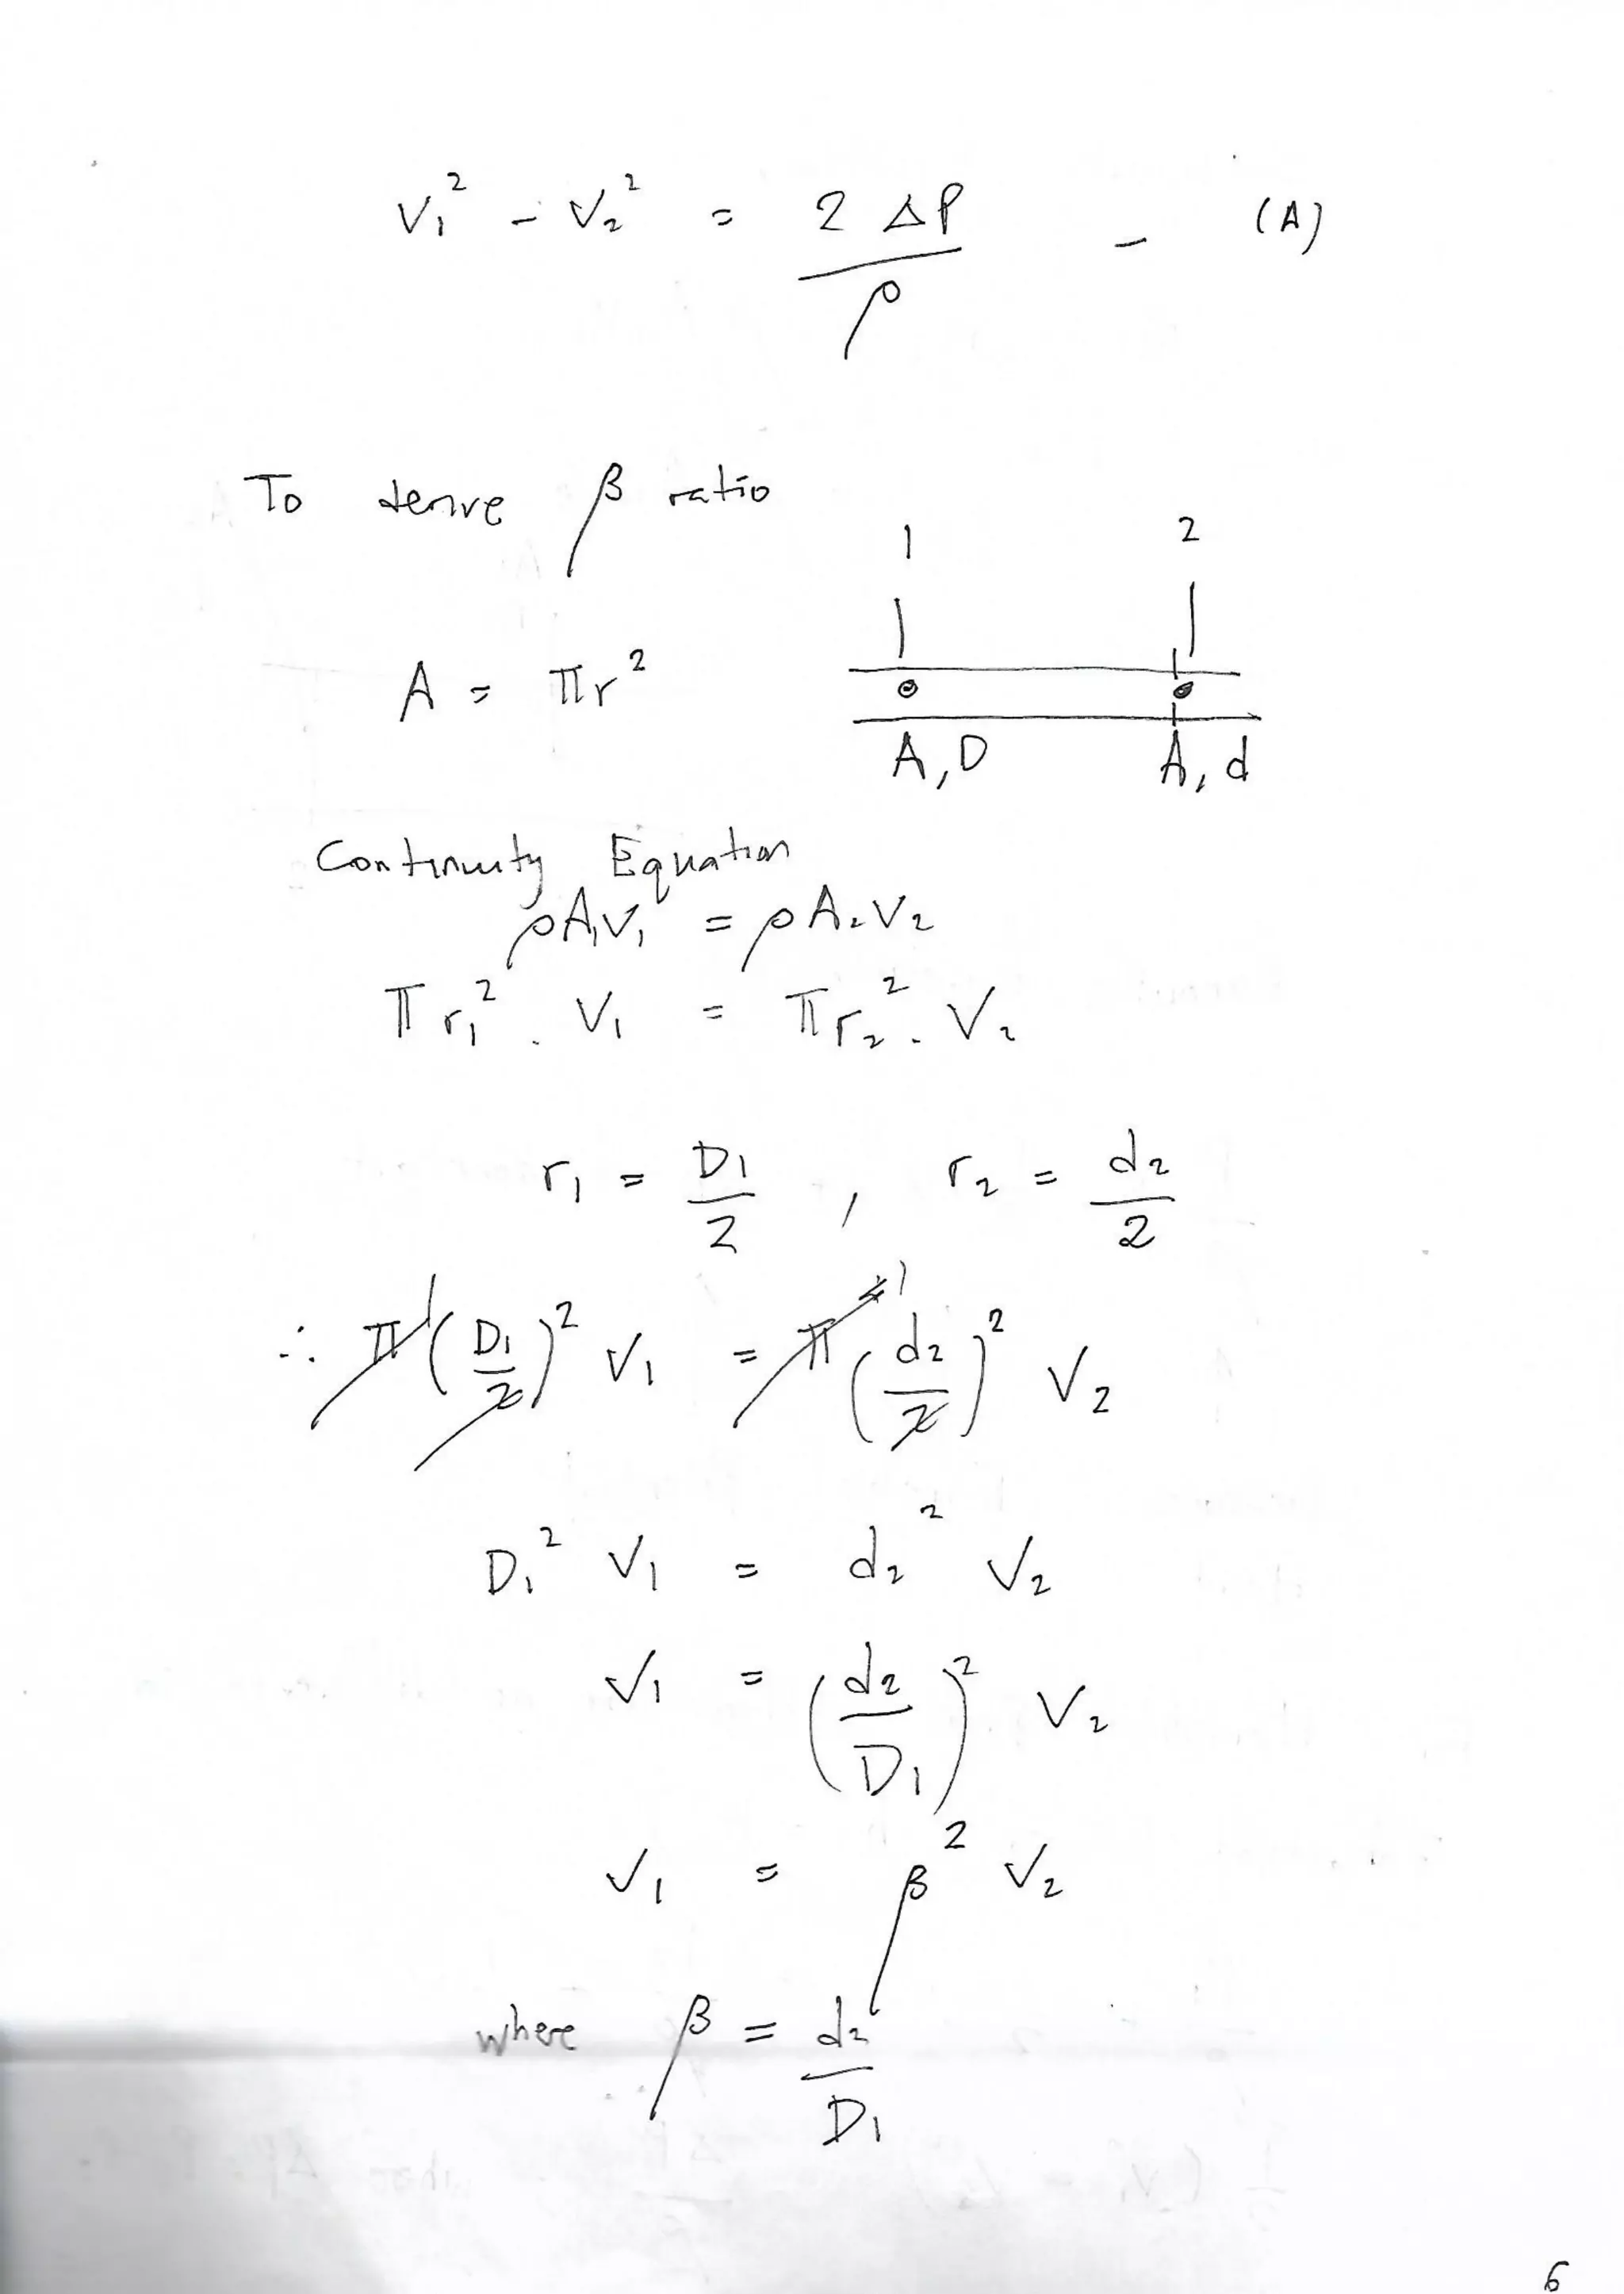 V₁² - V₂² = 2 ΔP / ρ - (A)
To derive β ratio
1 2
A = πr²
A, D A, d
Continuity Equation
ρA₁V₁ = ρA₂V₂
πr₁² . V₁ = πr₂² . V₂
r₁ = D₁/2 , r₂ = d₂/2
∴ π(D₁/2)² V₁ = π(d₂/2)² V₂
D₁² V₁ = d₂² V₂
V₁ = (d₂/D₁)² V₂
V₁ = β² V₂
where β = d₂/D₁
6